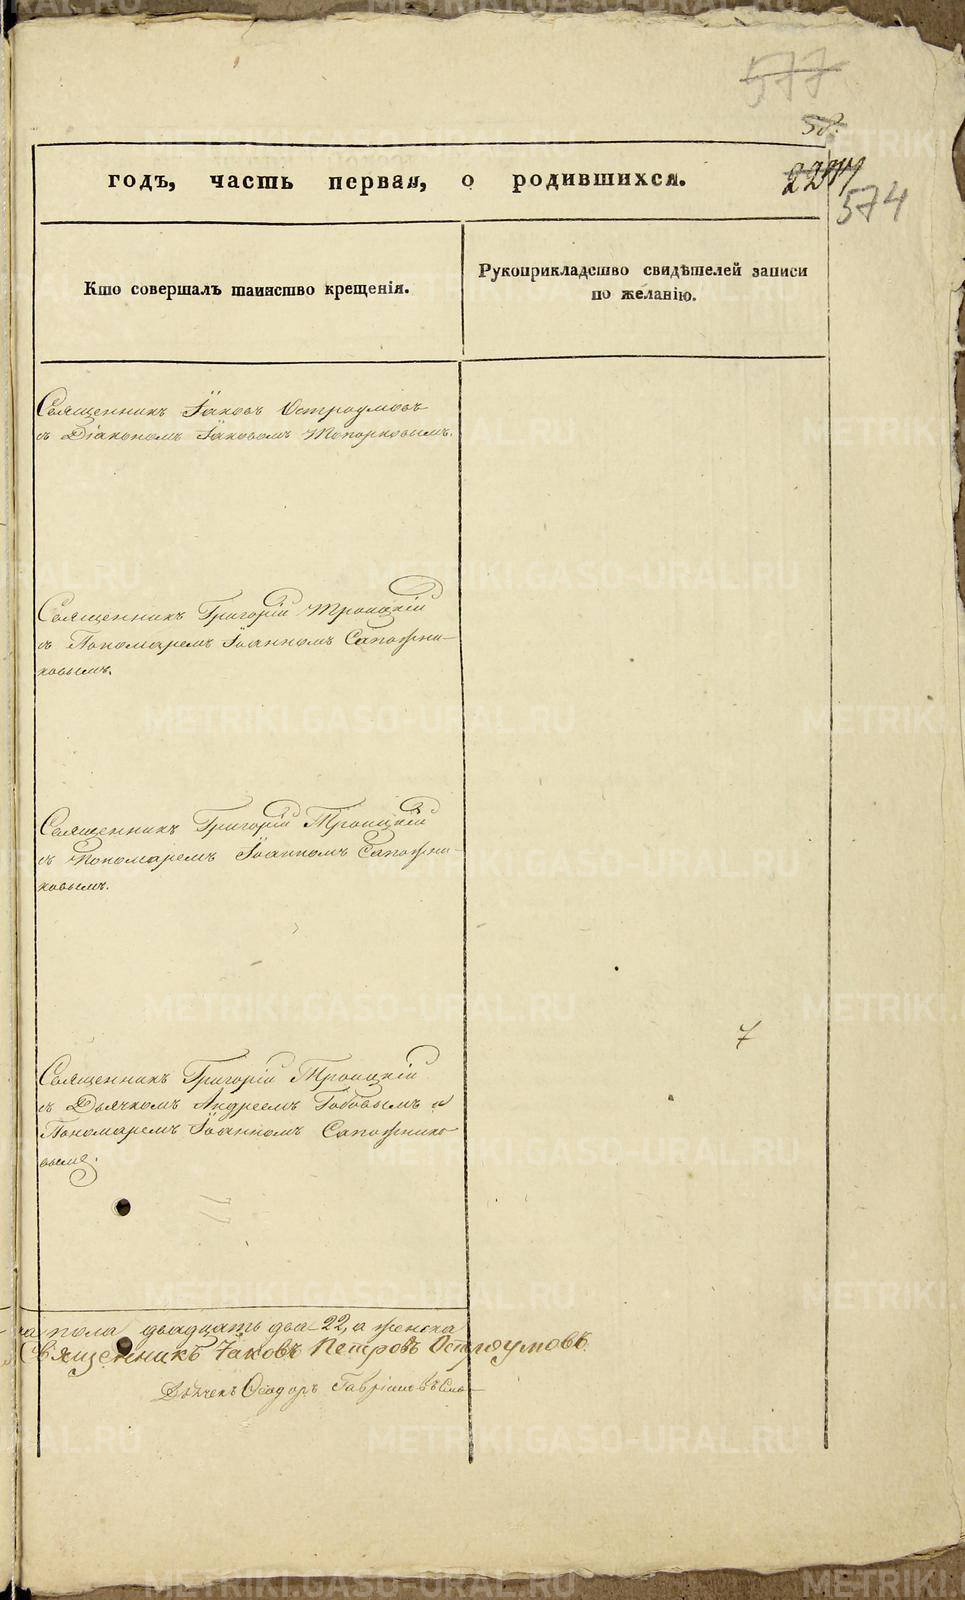 577
58.
годъ, часть первая, о родившихся.
574
Кто совершалъ таинство крещенія.
Рукоприкладство свидѣтелей записи
по желанію.
Священникъ Іаковъ Остроумовъ
съ Діакономъ Іаковомъ Топорковымъ.
Священникъ Григорій Троицкій
съ Пономаремъ Іоанномъ Сапожни-
ковымъ.
Священникъ Григорій Троицкій
съ Пономаремъ Іоанномъ Сапожни-
ковымъ.
7
Священникъ Григорій Троицкій
съ Дьячкомъ Андреемъ Бобовымъ и
Пономаремъ Іоанномъ Сапожнико-
вымъ.
пола двадцать два 22, а женска
Священникъ Іаковъ Петровъ Остроумовъ
Дьячекъ Ѳеодоръ Гавріиловъ
METRIKI.GASO-URAL.RU